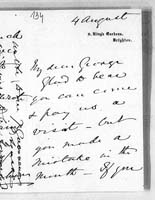 134
4 August
5, King's Gardens,
Brighton.
My dear George
Glad to hear
you can come
& pay us a
visit but
you made a
mistake in the
month - If you